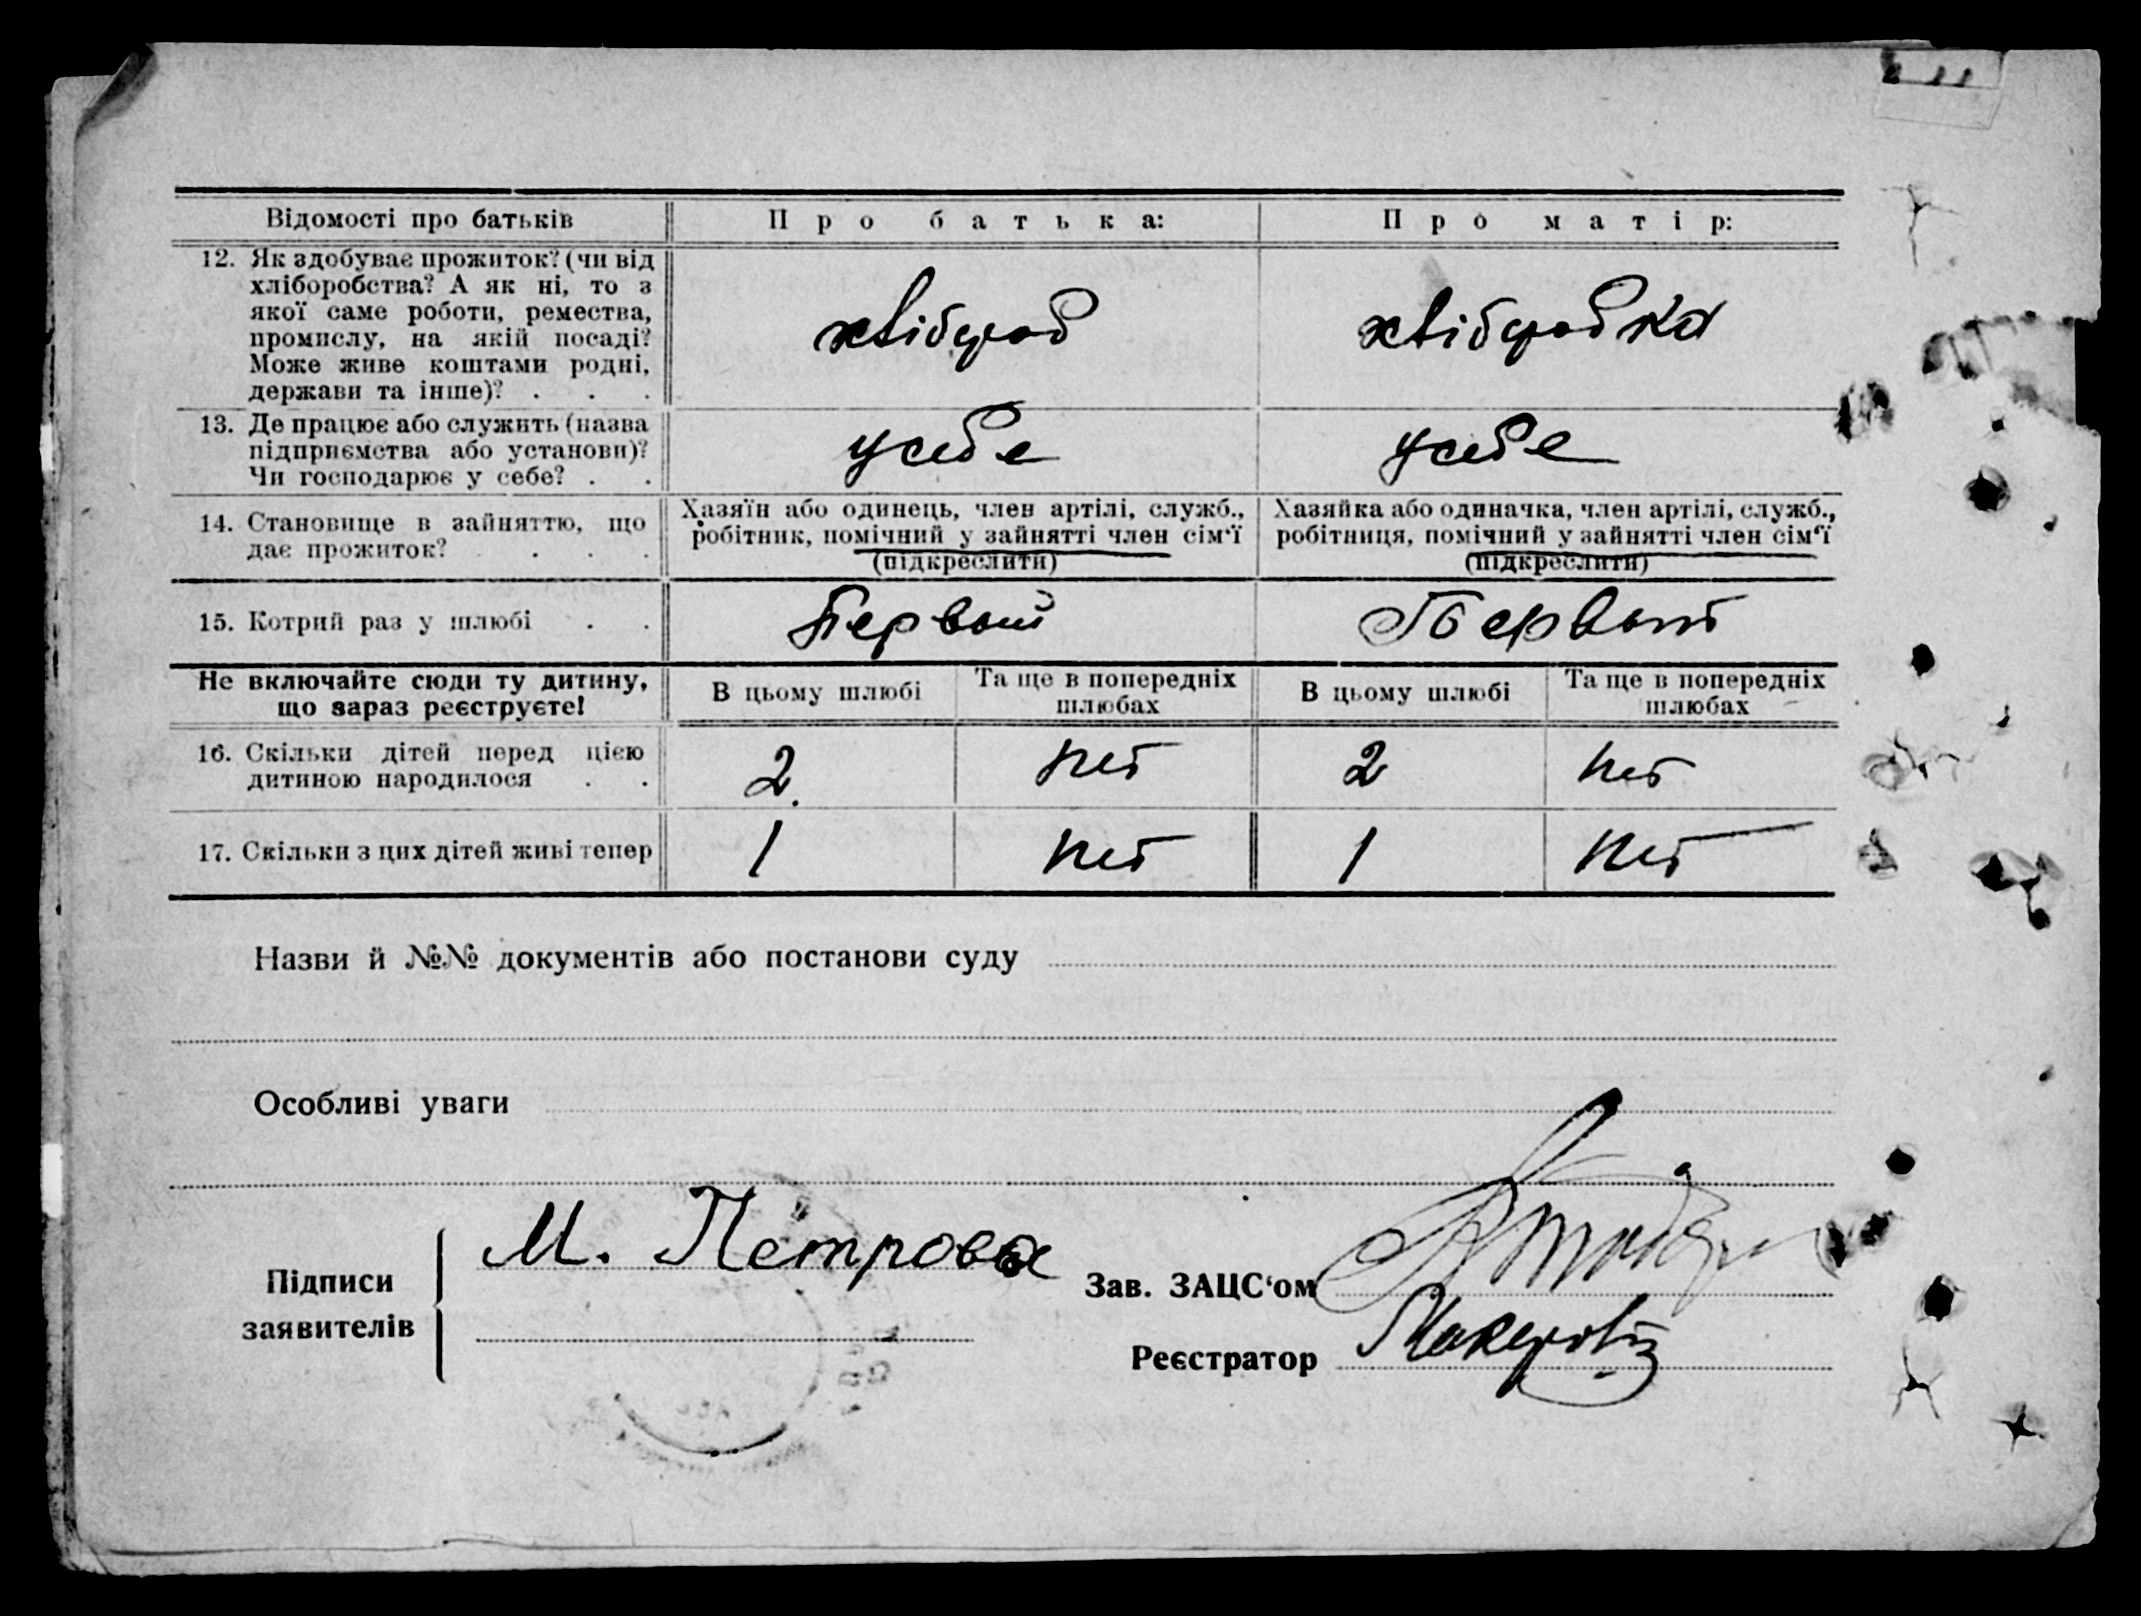 Відомості про батьків
Про батька:
Про матір:
12. Як здобуває прожиток? (чи від
хліборобства? А як ні, то з
якої саме роботи, ремества,
промислу, на якій посаді?
Може живе коштами родні,
держави та інше)? . . .
хлібороб
хліборобка
13. Де працює або служить (назва
підприємства або установи)?
Чи господарює у себе? . .
у себе
у себе
14. Становище в зайняттю, що
дає прожиток? . . .
Хазяїн або одинець, член артілі, служб.,
робітник, помічний у зайнятті член сім‘ї
(підкреслити)
Хазяйка або одиначка, член артілі, служб.,
робітниця, помічний у зайнятті член сім‘ї
(підкреслити)
15. Котрий раз у шлюбі . .
Первый
Первый
Не включайте сюди ту дитину,
що зараз реєструєте!
В цьому шлюбі
Та ще в попередніх
шлюбах
В цьому шлюбі
Та ще в попередніх
шлюбах
16. Скільки дітей перед цією
дитиною народилося . .
2
нет
2
нет
17. Скільки з цих дітей живі тепер
1
нет
1
нет
Назви й №№ документів або постанови суду
Особливі уваги
Підписи
заявителів
М. Петрова
Зав. ЗАЦС‘ом
Реєстратор